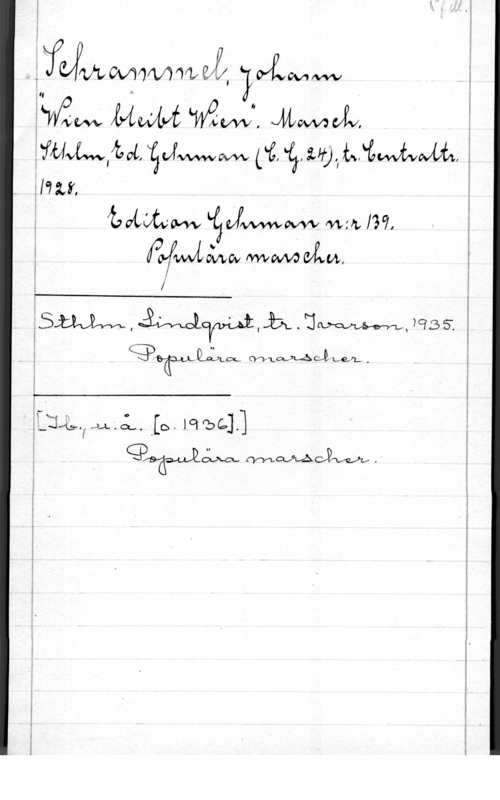 Pf dll.
Schrammel, Johann
"Wien bleibt Wien". Marsch.
Sthlm, Ed. Gehrman (C. G. 24), tr. Centraltr.
1928.
Edition Gehrman n:r 139.
Populära marscher.
Sthlm, Lindqvist, tr. Ivarson, 1935.
Populära marscher.
[Ib., u.å. [o. 1936].]
Populära marscher.